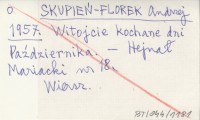 o SKUPIEŃ-FLOREK Andrzej
1957. Witojcie kochane dni
Października. – Hejnał
Mariacki nr 18.
Wiersz.